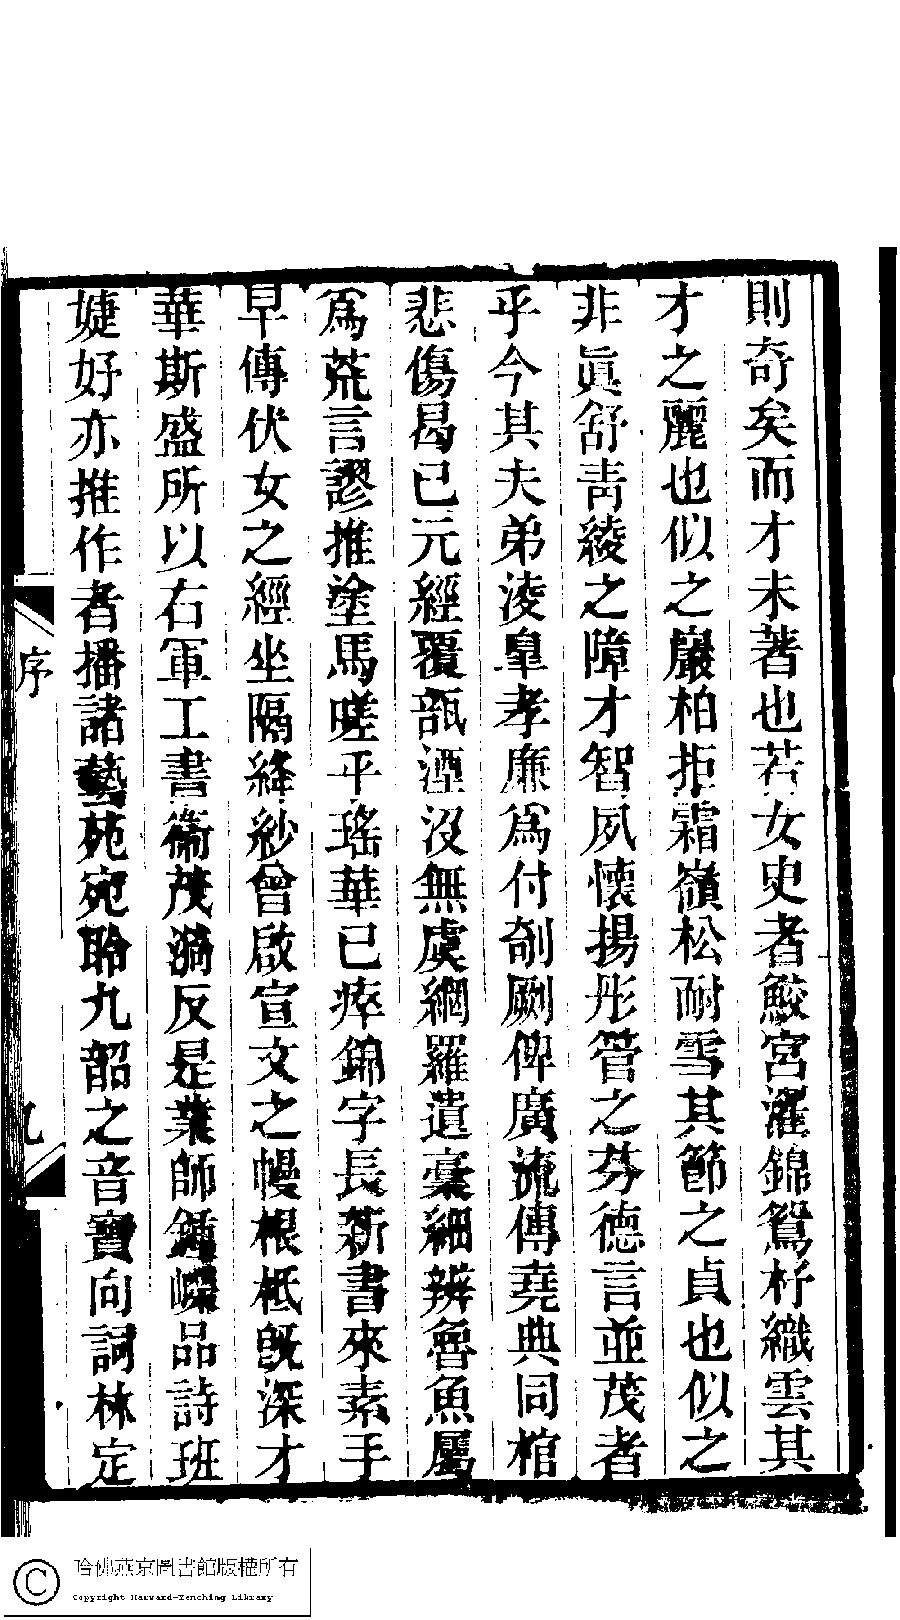 則奇矣而才未著也若女史者鮫宮濯錦鴛杼織雲其
才之麗也似之巖柏拒霜嶺松耐雪其節之貞也似之
非眞舒靑綾之障才智夙懷揚彤管之芬德言並茂者
乎今其夫弟淩臯孝廉爲付剞劂俾廣流傳堯典同棺
悲傷曷已元經覆瓿湮沒無虞網羅遺稾細辨魯魚屬
爲荒言謬推塗馬嗟乎瑤華已瘁錦字長新書來素手
早傳伏女之經坐隔絳紗曾啟宣文之幔根柢既深才
華斯盛所以右軍工書衞茂漪反是業師鍾嶸品詩班
婕妤亦推作者播諸藝苑宛聆九韶之音寶向詞林定
序
九
哈佛燕京圖書館版權所有
Copyright Harvard-Yenching Library